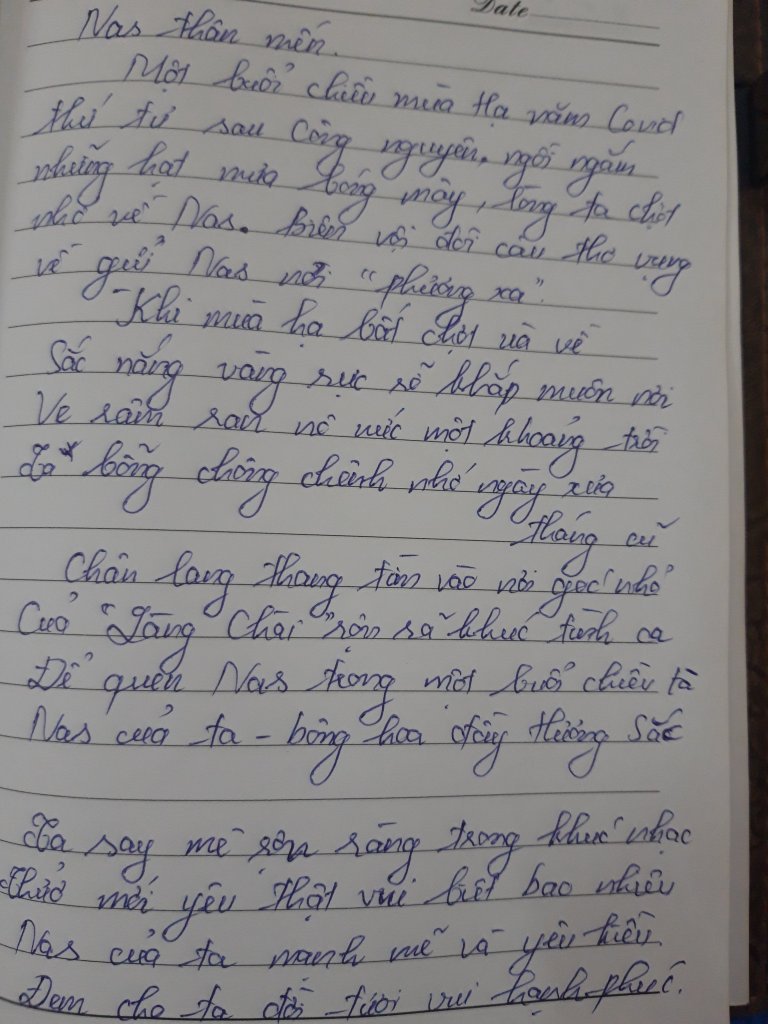 Date
Nas thân mến.
Một buổi chiều mùa Hạ năm Covid
thứ tư sau Công nguyên, ngồi ngắm
những hạt mưa bóng mây, lòng ta chợt
nhớ về Nas. Biên vội đôi câu thơ vụng
về gửi Nas nơi "phương xa".
- Khi mùa hạ bất chợt ùa về
Sắc nắng vàng rực rỡ khắp muôn nơi
Ve râm ran nô nức một khoảng trời
Ta bỗng chông chênh nhớ ngày xưa
tháng cũ
Chân lang thang tìm vào nơi góc nhỏ
Của "Làng Chài" rộn rã khúc tình ca
Để quên Nas trong một buổi chiều tà
Nas của ta - bông hoa đầy hương sắc
Ta say mê rộn ràng trong khúc nhạc
Thuở mới yêu thật vui biết bao nhiêu
Nas của ta mạnh mẽ và yêu kiều
Đem cho ta đời tươi vui hạnh phúc.